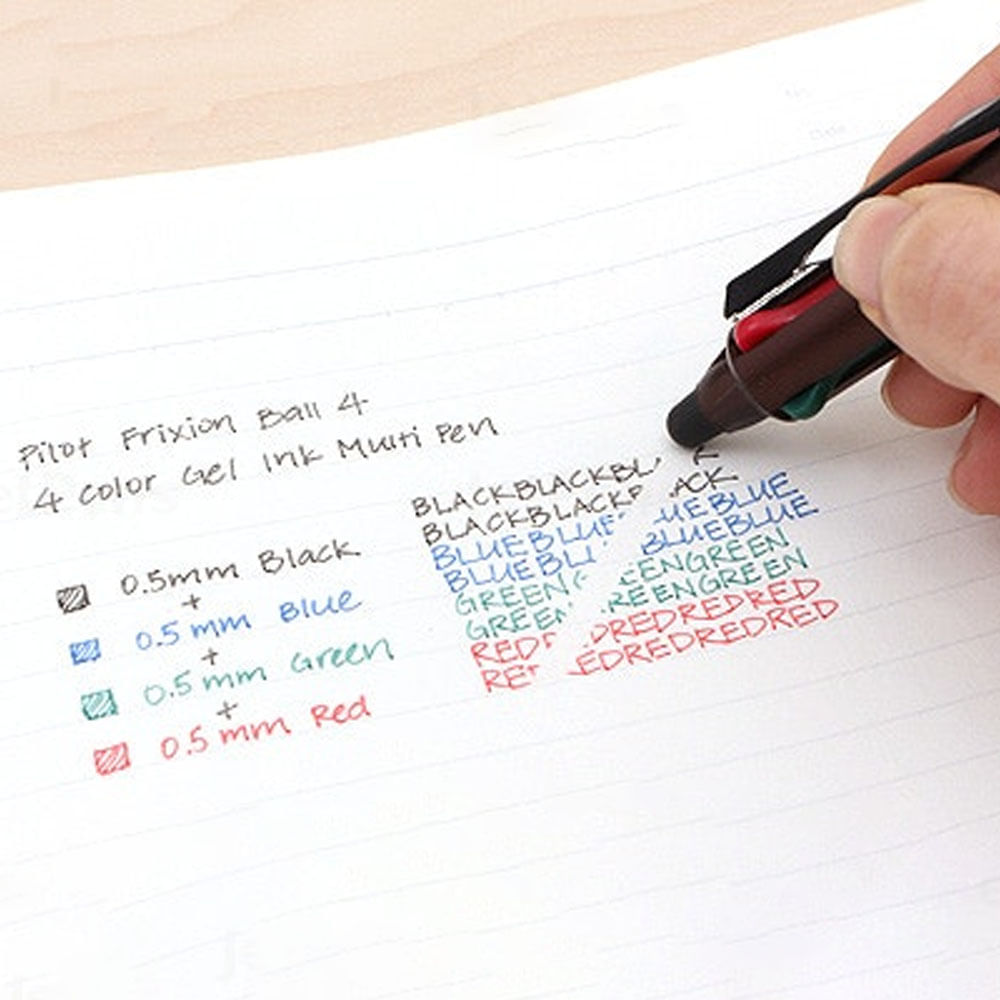 Pilot Frixion Ball 4
4 Color Gel Ink Multi Pen
0.5mm Black
+
0.5mm Blue
+
0.5mm Green
+
0.5mm Red
BLACKBLACKBL K
BLACKBLACK ACK
BLUEBLUE UEBLUE
BLUEBLU BLUEBLUE
GREEN EENGREEN
GREEN REENGREEN
RED DREDREDRED
RE EDREDREDRED